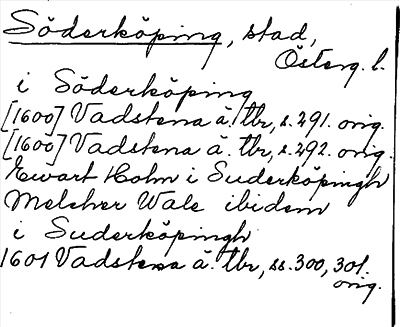 Söderköping, stad,
Österg. l.
i Söderköping
[1600] Vadstena ä. tbr, s. 291. orig.
[1600] Vadstena ä. tbr, s. 292. orig.
Ewart Holm i Suderköpingh
Melcher Wale ibidem
i Suderköpingh
1601 Vadstena ä. tbr, ss. 300, 301.
orig.